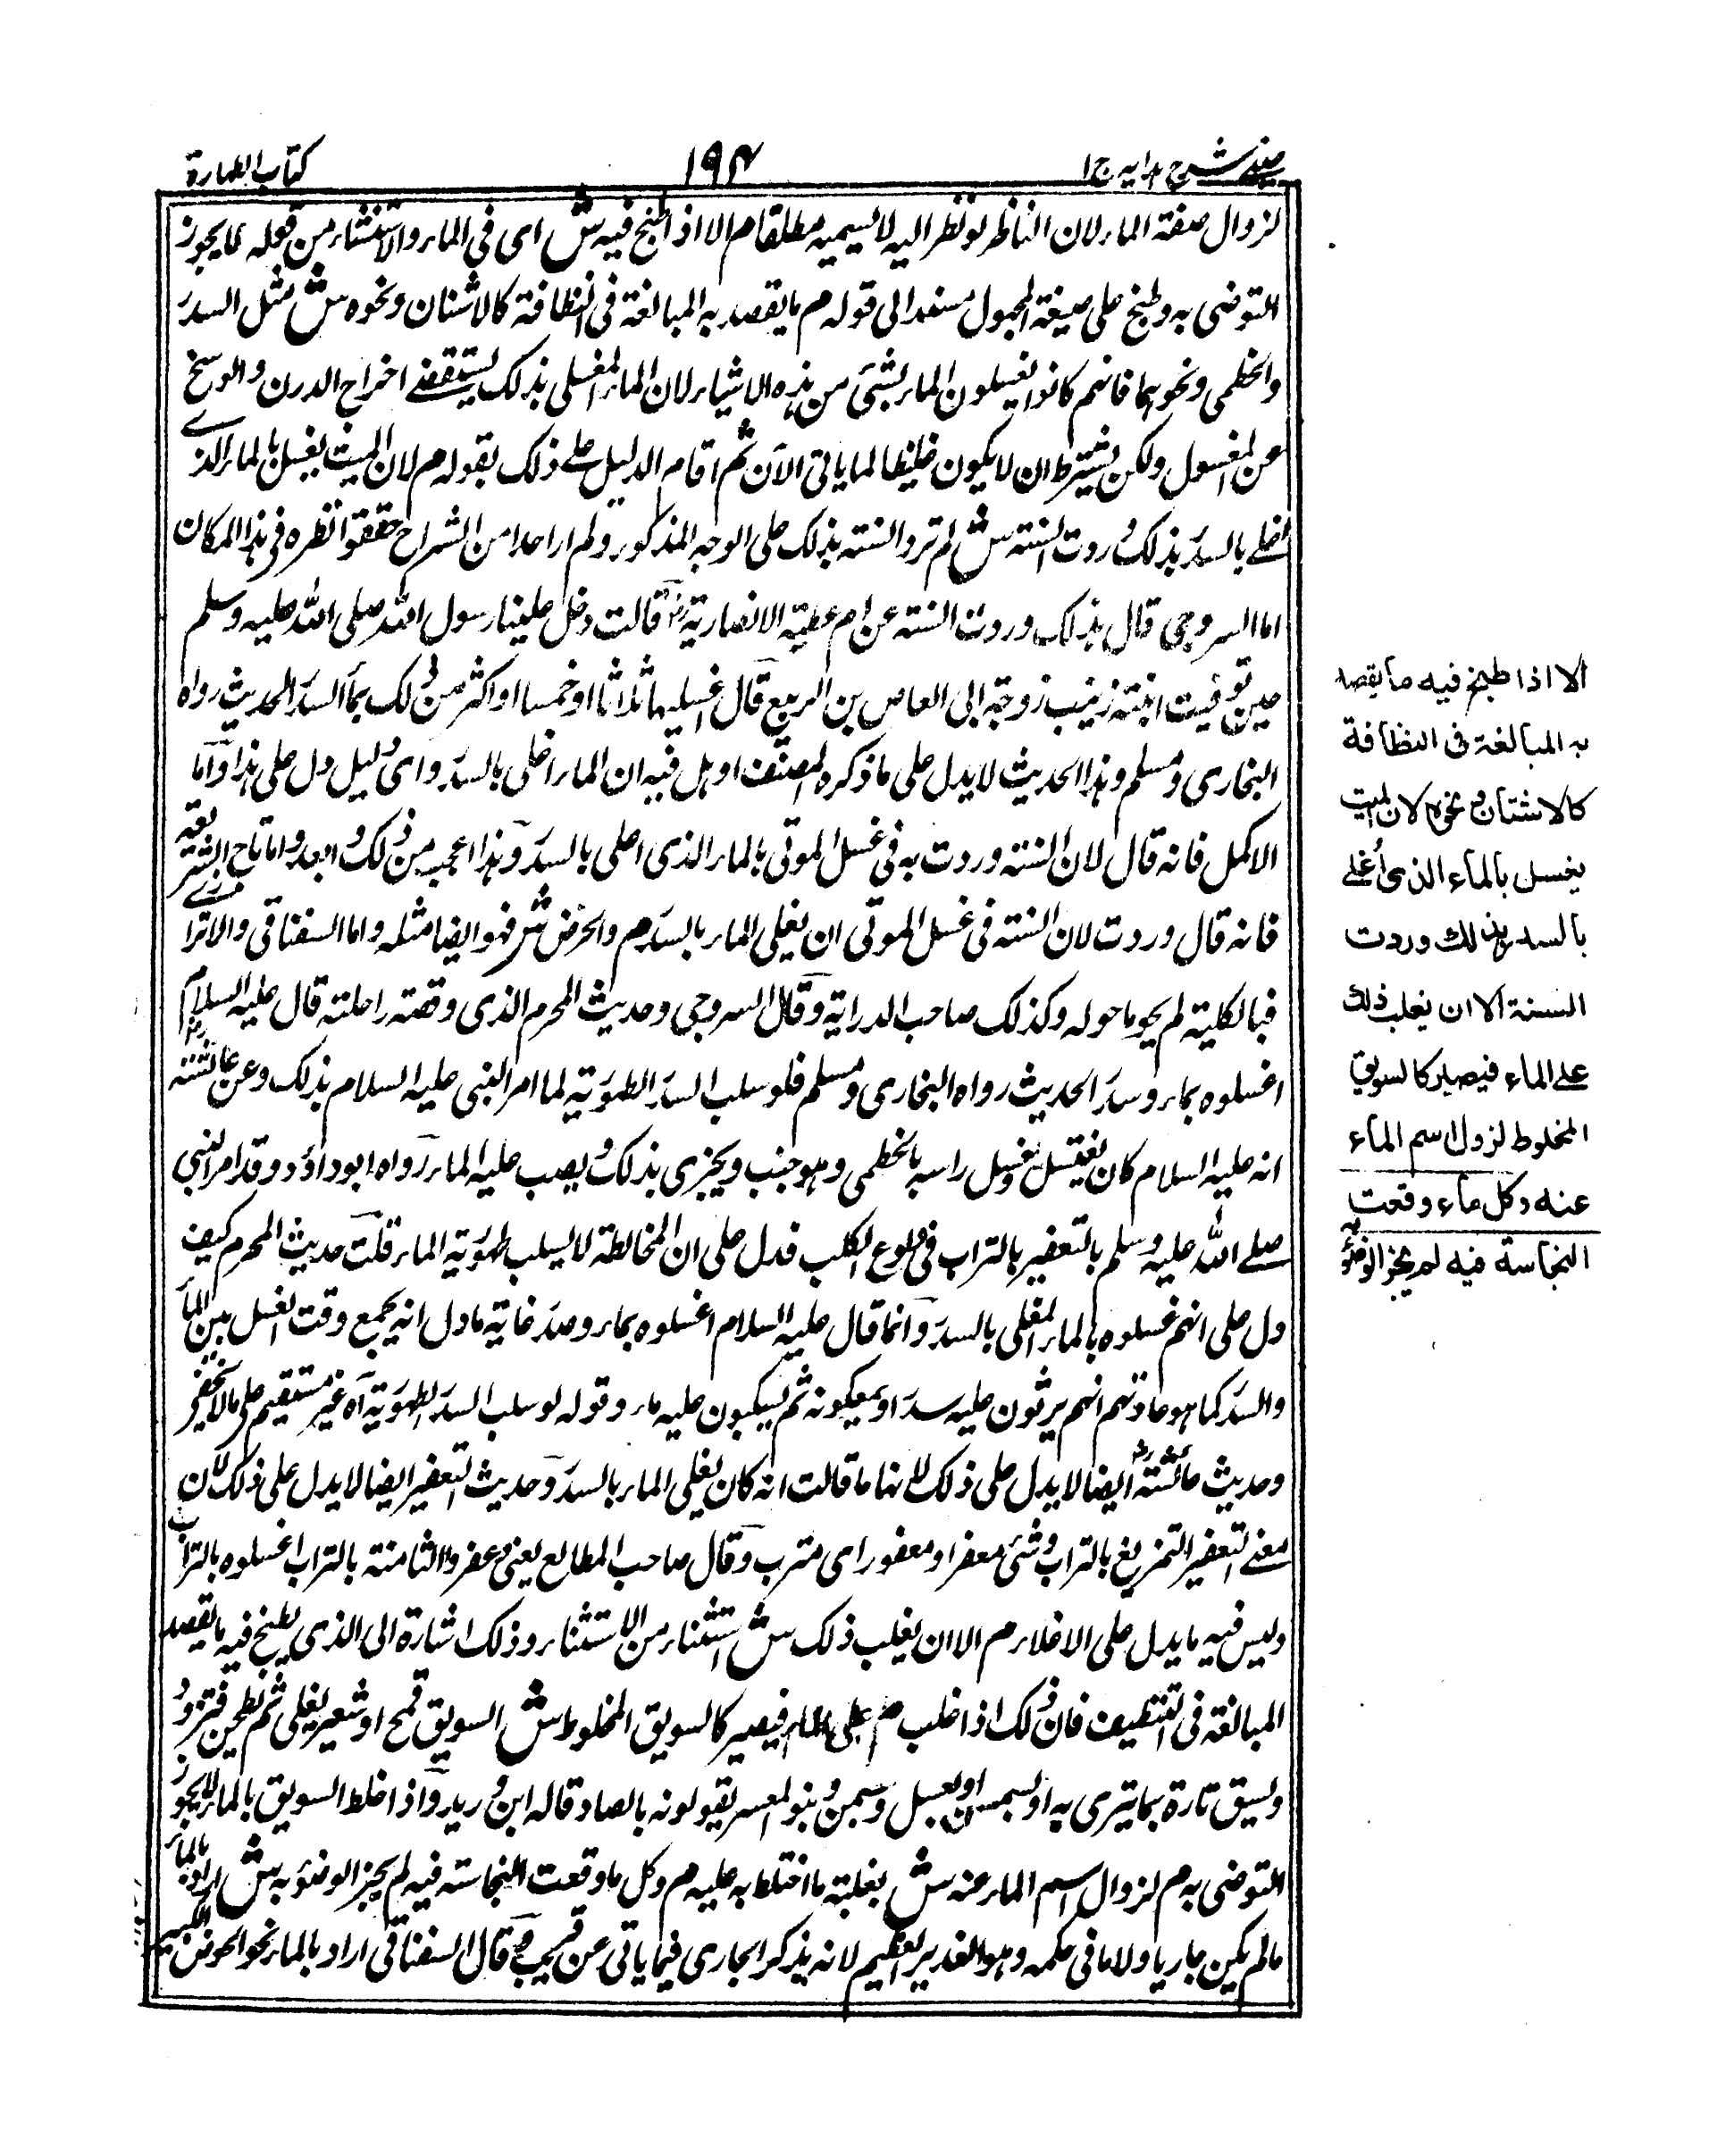 عینی شرح ہدایہ ج ۱
۱۹۴
کتاب الطہارۃ
لزوال صفة الماء لان الناظر لو نظر الیه لا یسمیه مطلقا م الا اذا طبخ فیه ش ای فی الماء والاستثناء من قوله لا یجوز
التوضی به وطبخ علی صیغة المجهول مسندا الی قوله م ما یقصد به المبالغة فی النظافة کالاشنان ونحوه ش مثل السدر
والخطمی ونحوهما فانهم کانوا یغسلون الماء بشئ من هذه الاشیاء لان الماء المغلی بذلک یستقضی اخراج الدرن والوسخ
من المغسول ولکن یشترط ان لا یکون غلیظا لما یاتی الآن ثم اقام الدلیل علی ذلک بقوله م لان المیت یغسل بالماء الذی
اغلی بالسدر بذلک وردت السنة ش لم ترد السنة بذلک علی الوجه المذکور ولم ار احدا من الشراح حققوا نظره فی هذا المکان
اما السروجی قال بذلک وردت السنة عن ام عطیة الانصاریة رض قالت دخل علینا رسول الله صلی الله علیه وسلم
حین توفیت ابنته زینب زوجة ابی العاص بن الربیع قال اغسلیها ثلاثا او خمسا او اکثر من ذلک بماء السدر الحدیث رواه
البخاری ومسلم وهذا الحدیث لا یدل علی ما ذکره المصنف او هل فیه ان الماء اغلی بالسدر وای دلیل دل علی هذا واما
الاکمل فانه قال لان السنة وردت به فی غسل الموتی بالماء الذی اغلی بالسدر وهذا اعجب من ذلک وابعد واما تاج الشریعة
فانه قال وردت لان السنة فی غسل الموتی ان یغلی الماء بالسدر م والحرض ش فهو ایضا مثله واما السغناقی والاترازی
فبالکلیة لم یحوما حوله وکذلک صاحب الدرایة وقال السروجی وحدیث المحرم الذی وقصته راحلته قال علیه السلام
اغسلوه بماء وسدر الحدیث رواه البخاری ومسلم فلو سلب السدر الطهوریة لما امر النبی علیه السلام بذلک وعن عائشة رض
انه علیه السلام کان یغتسل ویغسل راسه بالخطمی وهو جنب ویجزی بذلک ویصب علیه الماء رواه ابوداؤد وقد امر النبی
صلی الله علیه وسلم بالتعفیر بالتراب فی ولوغ الکلب فدل علی ان المخالطة لا یسلب طهوریة الماء قلت حدیث المحرم کیف
دل علی انهم غسلوه بالماء المغلی بالسدر وانما قال علیه السلام اغسلوه بماء وسدر غایة ما دل انه یجمع وقت الغسل بین الماء
والسدر کما هو عادتهم انهم یرثون علیه سدر او یمعکونه ثم یسکبون علیه ماء وقوله لو سلب السدر الطهوریة اه غیر مستقیم علی ما لا یخفی
وحدیث عائشة رض ایضا لا یدل علی ذلک لانها ما قالت انه کان یغلی الماء بالسدر وحدیث التعفیر ایضا لا یدل علی ذلک لان
معنی التعفیر التمریغ بالتراب وشئ معفر او معفور ای مترب وقال صاحب المطالع یعنی عفروا الثامنة بالتراب اغسلوه بالتراب
ولیس فیه ما یدل علی الاغلاء م الا ان یغلب ذلک ش استثناء من الاستثناء وذلک اشارة الی الذی یطبخ فیه ما یقصد
المبالغة فی التنظیف فان ذلک اذا غلب م علی الماء فیصیر کالسویق المخلوط ش السویق قمح او شعیر یغلی ثم یطحن فیتزود
ویسیق تارة بما یتری به او بسمن او بعسل وسمن وبنو العنبر یقولونه بالصاد قاله ابن درید واذا خلط السویق بالماء لا یجوز
التوضی به م لزوال اسم الماء عنه ش بغلبة ما اختلط به علیه م وکل ما وقعت النجاسة فیه لم یجز الوضوء به ش اراد بالماء
ما لم یکن جاریا ولا ما فی حکمه وهو الغدیر العظیم لانه یذکر الجاری فیما یاتی عن قریب قال السغناقی اراد بالماء نحو الحوض
الا اذا طبخ فیه ما یقصد
به المبالغة فی النظافة
کالاشنان ونحوه لان المیت
یغسل بالماء الذی أغلی
بالسدر بذلک وردت
السنة الا ان یغلب ذلک
علی الماء فیصیر کالسویق
المخلوط لزوال اسم الماء
عنه وکل ماء وقعت
النجاسة فیه لم یجز الوضوء به